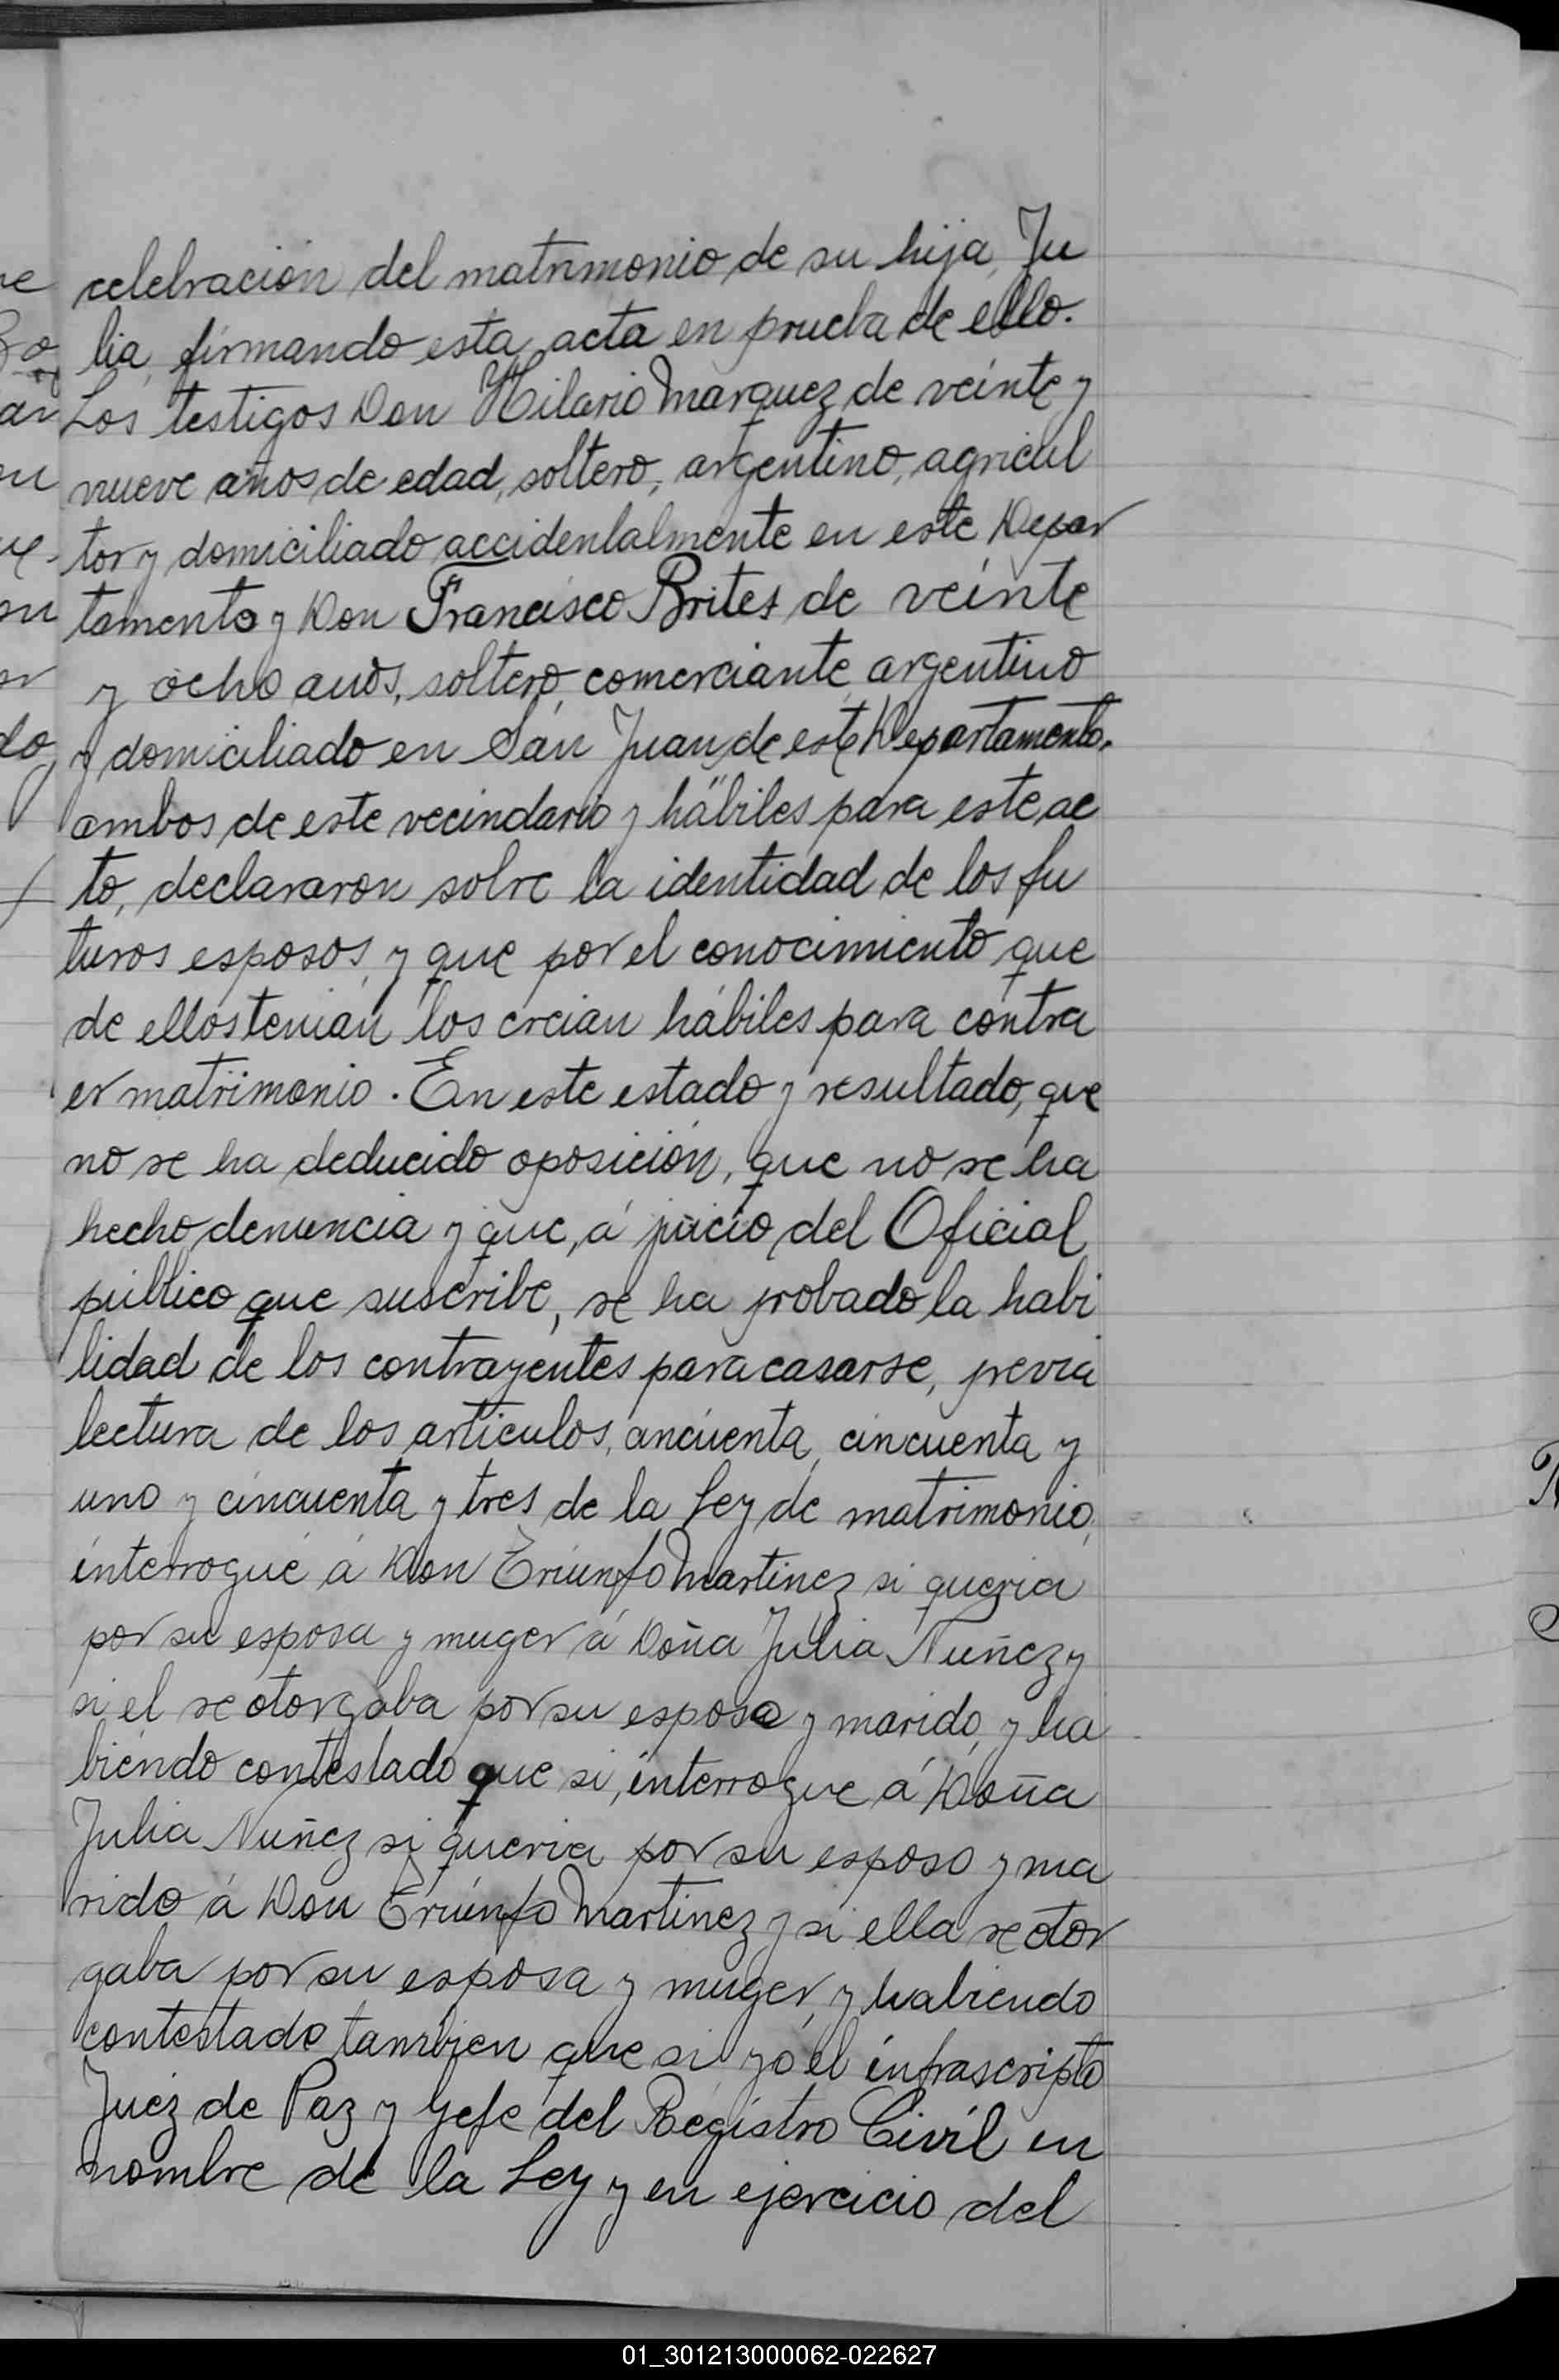 celebracion del matrimonio de su hija, Ju
lia, firmando esta acta en prueba de ello.
Los testigos Don Hilario Marquez de veinte y
nueve años de edad, soltero, argentino, agricul
tor y domiciliado accidentalmente en este Depar
tamento y Don Francisco Brites de veinte
y ocho años, soltero, comerciante, argentino
y domiciliado en San Juan, de este Departamento,
ambos de este vecindario y hábiles para este ac
to, declararon sobre la identidad de los fu
turos esposos, y que por el conocimiento que
de ellos tenian los creian hábiles para contra
er matrimonio. En este estado y resultado, que
no se ha deducido oposición, que no se ha
hecho denuncia y que, á juicio del Oficial
público que suscribe, se ha probado la habi
lidad de los contrayentes para casarse, previa
lectura de los articulos, cincuenta, cincuenta y
uno y cincuenta y tres de la Ley de matrimonio,
interrogué á Don Triunfo Martinez si queria
por su esposa y muger á Doña Julia Nuñez y
si el se otorgaba por su esposo y marido, y ha
biendo contestado que si, interrogue á Doña
Julia Nuñez si queria por su esposo y ma
rido á Don Triunfo Martinez y si ella se otor
gaba por su esposa y muger, y habiendo
contestado tambien que si yo el infrascripto
Juez de Paz y Gefe del Registro Civil en
nombre de la Ley y en ejercicio del
01_301213000062-022627